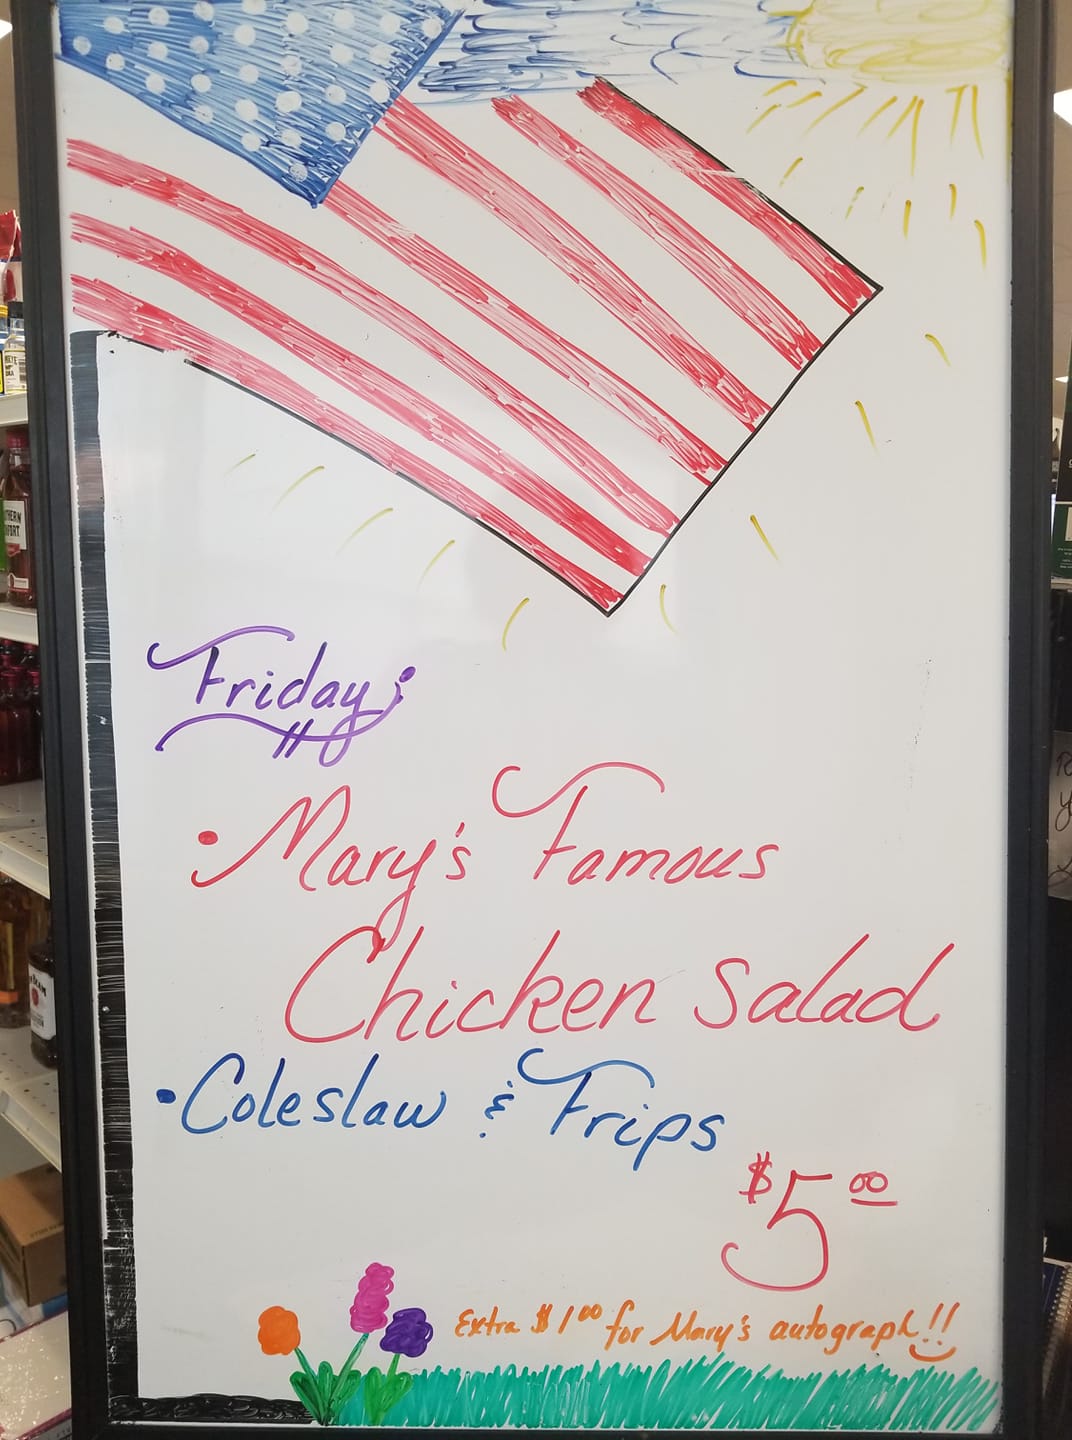 Friday;
• Mary's Famous
Chicken Salad
• Coleslaw & Frips
$5.00
Extra $1.00 for Mary's autograph!!